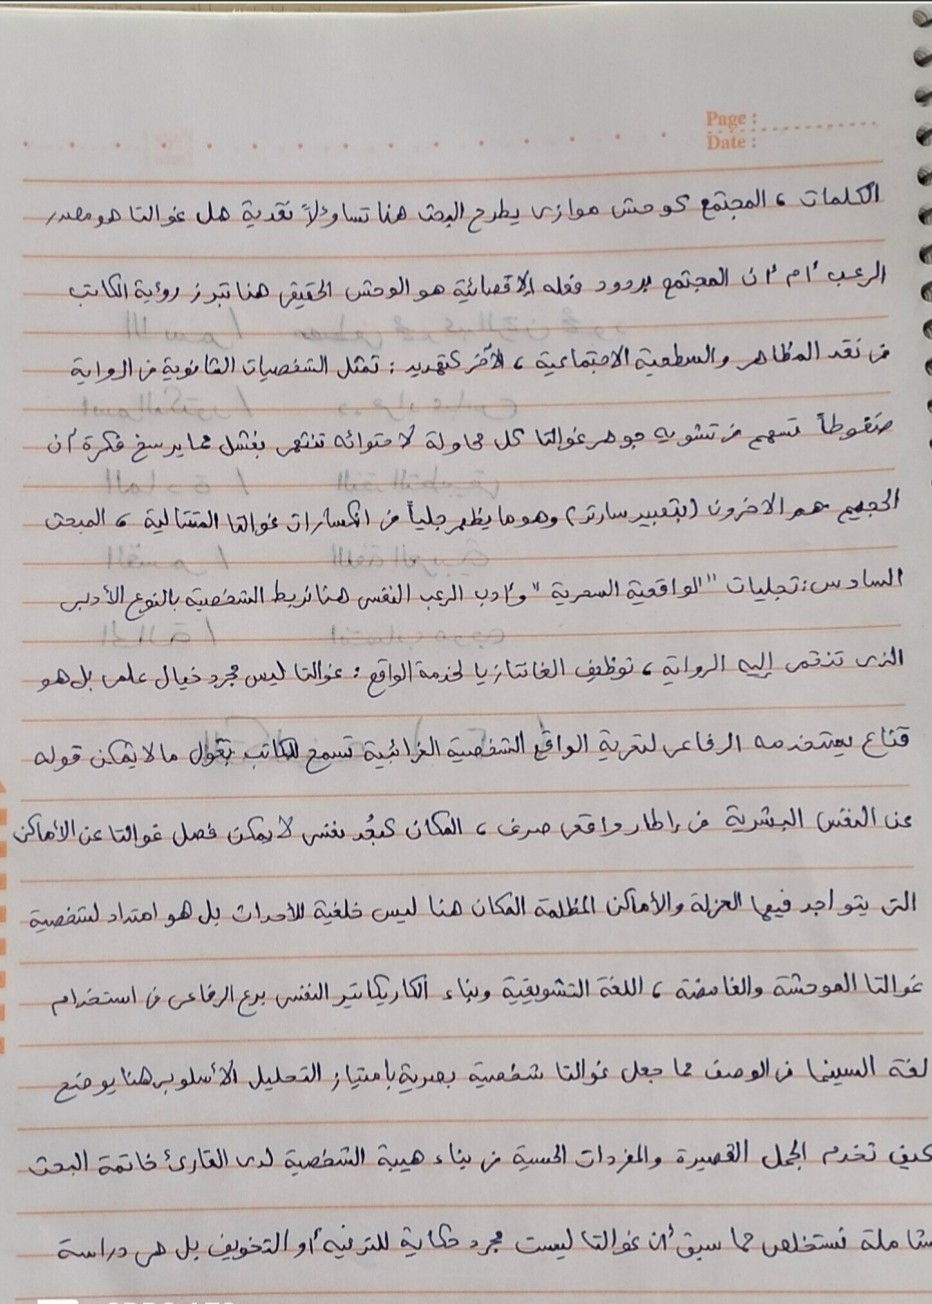 Page :
Date :
الكلمات ، المجتمع كوحش موازى يطرح البحث هنا تساؤلاً نقدية هل غوالتا هو مصدر
الرعب أم أن المجتمع بردود فعله الإقصائية هو الوحش الحقيقي هنا تبرز رؤية الكاتب
في نقد المظاهر والسطحية الاجتماعية ، الآخر كتهديد : تمثل الشخصيات الثانوية في الرواية
ضغوطاً تسهم في تشويه جوهر غوالتا كل محاولة لاحتوائه تنتهي بفشل مما يرسخ فكرة أن
الجحيم هم الاخرون (بتعبير سارتر) وهو ما يظهر جلياً في انكسارات غوالتا المتتالية ، المبحث
السادس : تجليات "الواقعية السحرية" وأدب الرعب النفسي هنا نربط الشخصية بالنوع الأدبي
الذى تنتمى إليه الرواية ، توظيف الفانتازيا لخدمة الواقع : غوالتا ليس مجرد خيال علمى بل هو
قناع يستخدمه الرفاعى لتعرية الواقع الشخصية الغرائبية تسمح للكاتب بقول ما لا يمكن قوله
عن النفس البشرية في إطار واقعى صرف ، المكان كبُعد نفسى لا يمكن فصل غوالتا عن الأماكن
التى يتواجد فيها العزلة والأماكن المظلمة المكان هنا ليس خلفية للأحداث بل هو امتداد لشخصية
غوالتا الموحشة والغامضة ، اللغة التشويقية وبناء الكاريكاتير النفسى برع الرفاعى في استخدام
لغة السينما في الوصف مما جعل غوالتا شخصية بصرية بامتياز التحليل الأسلوبى هنا يوضح
كيف تخدم الجمل القصيرة والمفردات الحسية في بناء هيبة الشخصية لدى القارئ خاتمة البحث
شاملة نستخلص مما سبق أن غوالتا ليست مجرد حكاية للترفيه أو التخويف بل هى دراسة